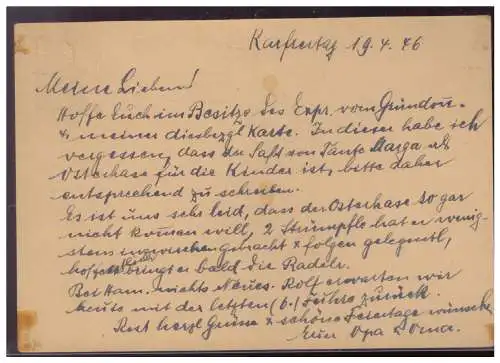 Karfreitag 19.4.46
Meine Lieben!
Hoffe Euch im Besitze des Expr. vom Gründon-
u. meiner diesbezgl Karte. In dieser habe ich
vergessen, dass der Saft von Tante Marga als
Osterhase für die Kinder ist, bitte daher
entsprechend zu schreiben.
Es ist uns sehr leid, dass der Osterhase so gar
nicht kommen will, 2 Stümpfle hat er wenig-
stens inzwischen gebracht & folgen gelegentl,
hoffentl bringt er bald die Radeln.
Bei Hann. nichts Neues. Rolf erwarten wir
heute mit der letzten (6.) Fuhre zurück.
Rest herzl Grüsse & schöne Feiertage wünschen
Euer Opa & Oma.